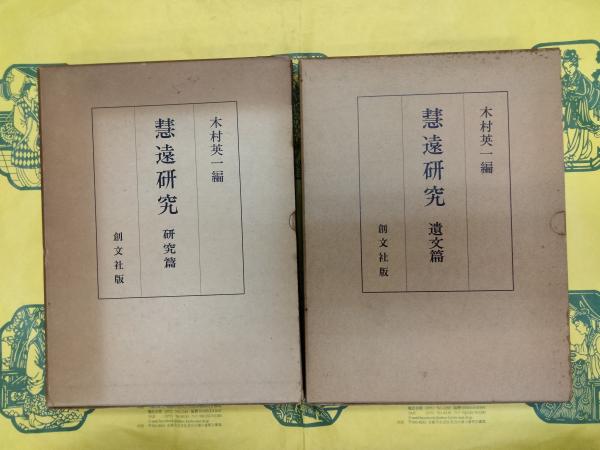 木村英一編
慧遠研究 研究篇
創文社版
木村英一編
慧遠研究 遺文篇
創文社版